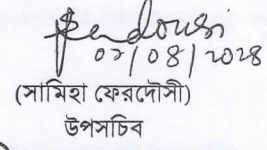 Ferdousi
07/08/2028
(সামিহা ফেরদৌসী)
উপসচিব